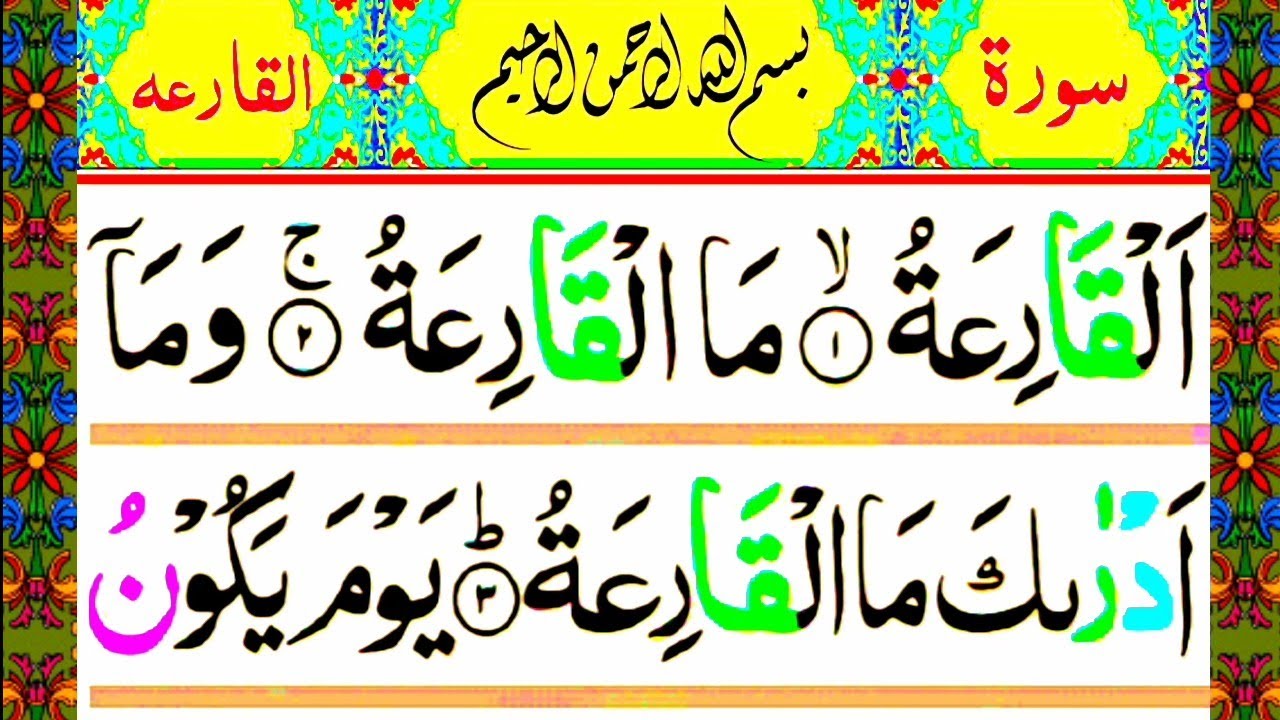 سورة بسم الله الرحمن الرحيم القارعه
اَلْقَارِعَةُ ۙ﴿۱﴾ مَا الْقَارِعَةُ ۚ﴿۲﴾ وَمَاۤ
اَدْرٰىكَ مَا الْقَارِعَةُ ؕ﴿۳﴾ يَوْمَ يَكُوْنُ